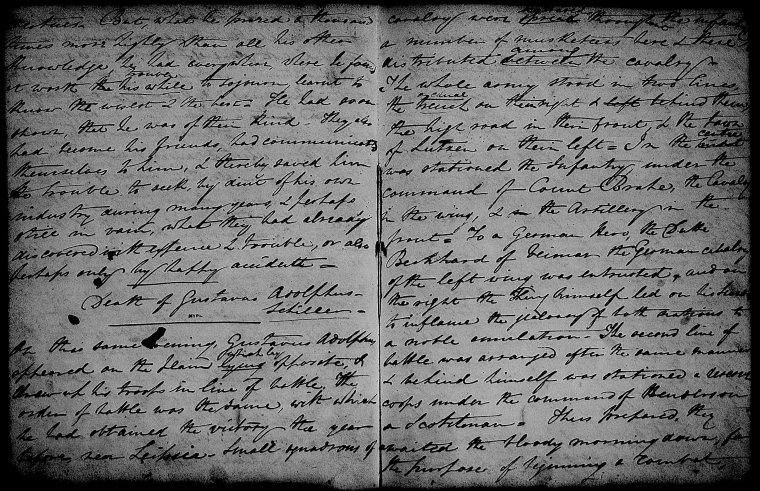 times. But what he prized a thousand
times more highly than all his other
knowledge he had everywhere where he found
it worth the his while to sojourn learnt to
trouve
know the worst & the best = He had soon
shown, that he was of their kind. They also
had become his friends, had communicated
themselves to him, & thereby saved him
the trouble to seek, by dint of his own
industry during many years, & perhaps
still in vain, what they had already
discovered with expence & trouble, or also
perhaps only by happy accidents =
Death of Gustavus Adolphus =
Schiller =
On this same evening, Gustavus Adolphus
appeared on the plain lying opposite, &
drew up his troops in line of battle. The
order of battle was the same, with which
he had obtained the victory the year
before near Leipsia = Small squadrons of
cavalry were spread through the infantry
a number of musketeers here & there
among
distributed between the cavalry =
The whole army stood in two lines,
the canal on the right & left behind them,
the high road in their front, & the town
of Lutzen on their left = In the
centre
was stationed the Infantry under the
command of Count Brahe, the Cavalry
in the wing, & in the Artillery in the
front = To a German Hero, the Duke
Beckhard of Weimar the German cavalry
of the left wing was entrusted, and on
the right the King himself led on his Swedes
to inflame the jealousy of both nations to
a noble emulation = The second line of
battle was arranged after the same manner
& behind himself was stationed a reserve
corps under the command of Henderson
a Scotchman = Thus prepared, they
awaited the bloody morning dawn, for
the purpose of beginning a combat,